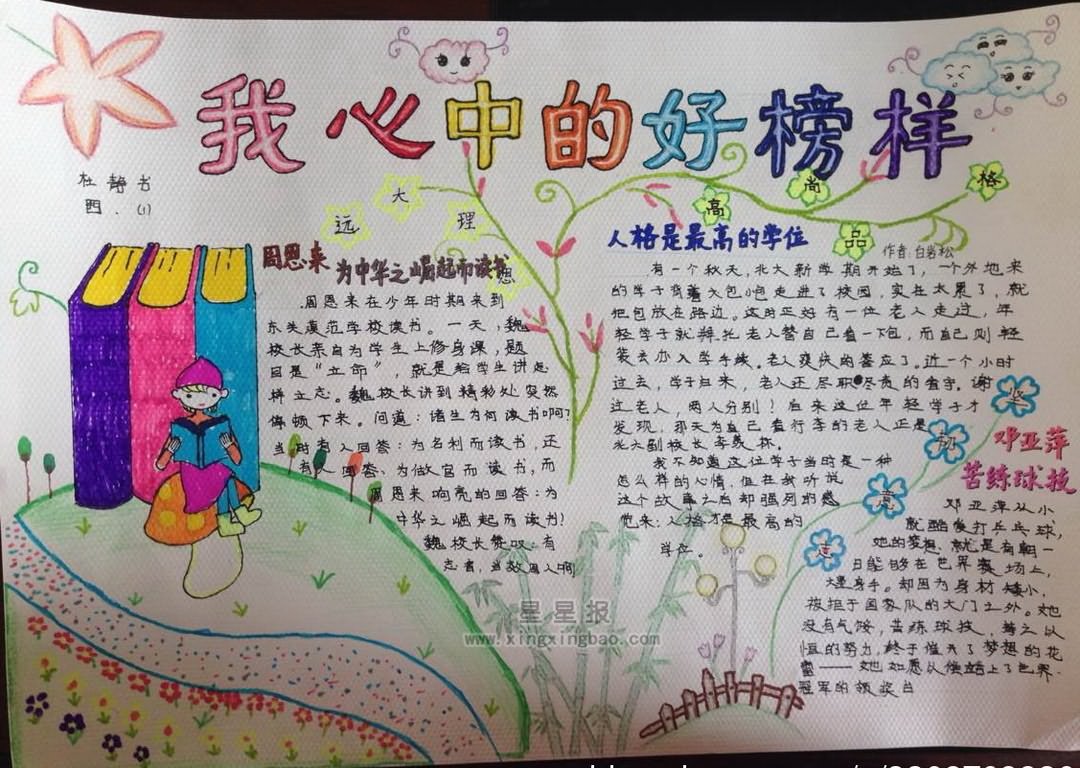 我心中的好榜样
杜静书
四.(1)
远大理想
高尚品格
坚韧意
周恩来 为中华之崛起而读书
周恩来在少年时期来到
东关模范学校读书。一天,魏
校长亲自为学生上修身课,题
目是“立命”,就是给学生讲怎
样立志。魏校长讲到精彩处突然
停顿下来。问道:诸生为何读书啊?
当时有人回答:为名利而读书,还
有人回答:为做官而读书,而
周恩来响亮的回答:为
中华之崛起而读书!
魏校长赞叹:有
志者,当效周人啊
人格是最高的学位
作者:白岩松
有一个秋天,北大新学期开始了,一个外地来
的学子背着大包小包走进了校园,实在太累了,就
把包放在路边。这时正好有一位老人走过,年
轻学子就拜托老人替自己看一下包,而自己则轻
装去办入学手续。老人爽快的答应了。近一个小时
过去,学子归来,老人还尽职尽责的看守。谢
过老人,两人分别!后来这位年轻学子才
发现,那天为自己看行李的老人正是
北大副校长季羡林。
我不知道这位学子当时是一种
怎么样的心情,但在我听说
这个故事之后却强烈的感
觉来:人格才是最高的
学位。
邓亚萍
苦练球技
邓亚萍从小
就酷爱打乒乓球,
她的梦想,就是有朝一
日能够在世界赛场上,
大显身手。却因为身材矮小,
被拒于国家队的大门之外。她
没有气馁,苦练球技,
恒的努力,终于催开了梦想的花
蕾——她如愿以偿站上了世界
冠军的领奖台
星星报
www.xingxingbao.com